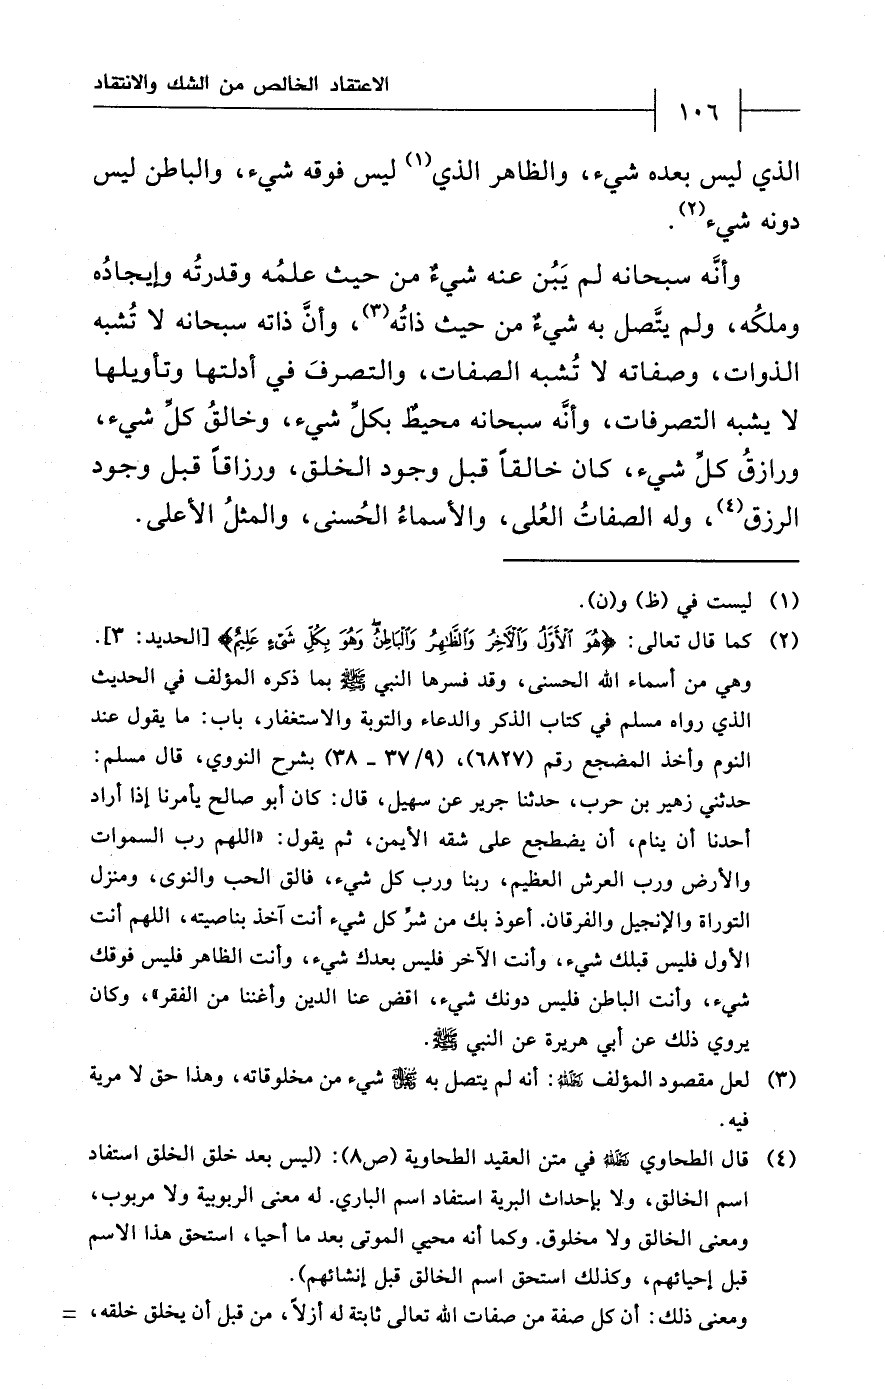 الاعتقاد الخالص من الشك والانتقاد
١٠٦
الذي ليس بعده شيء، والظاهر الذي(١) ليس فوقه شيء، والباطن ليس
دونه شيء(٢).
وأنَّه سبحانه لم يَبُن عنه شيءٌ من حيث علمُه وقدرتُه وإيجادُه
وملكُه، ولم يتَّصل به شيءٌ من حيث ذاتُه(٣)، وأنَّ ذاته سبحانه لا تُشبه
الذوات، وصفاته لا تُشبه الصفات، والتصرفَ في أدلتها وتأويلها
لا يشبه التصرفات، وأنَّه سبحانه محيطٌ بكلِّ شيء، وخالقُ كلِّ شيء،
ورازقُ كلِّ شيء، كان خالقاً قبل وجود الخلق، ورزاقاً قبل وجود
الرزق(٤)، وله الصفاتُ العُلى، والأسماءُ الحُسنى، والمثلُ الأعلى.
(١) ليست في (ظ) و(ن).
(٢) كما قال تعالى: ﴿هُوَ ٱلْأَوَّلُ وَٱلْآخِرُ وَٱلظَّٰهِرُ وَٱلْبَاطِنُ ۖ وَهُوَ بِكُلِّ شَىْءٍ عَلِيمٌ﴾ [الحديد: ٣].
وهي من أسماء الله الحسنى، وقد فسرها النبي ﷺ بما ذكره المؤلف في الحديث
الذي رواه مسلم في كتاب الذكر والدعاء والتوبة والاستغفار، باب: ما يقول عند
النوم وأخذ المضجع رقم (٦٨٢٧)، (٩/ ٣٧ ـ ٣٨) بشرح النووي، قال مسلم:
حدثني زهير بن حرب، حدثنا جرير عن سهيل، قال: كان أبو صالح يأمرنا إذا أراد
أحدنا أن ينام، أن يضطجع على شقه الأيمن، ثم يقول: «اللهم رب السموات
والأرض ورب العرش العظيم، ربنا ورب كل شيء، فالق الحب والنوى، ومنزل
التوراة والإنجيل والفرقان. أعوذ بك من شرِّ كل شيء أنت آخذ بناصيته، اللهم أنت
الأول فليس قبلك شيء، وأنت الآخر فليس بعدك شيء، وأنت الظاهر فليس فوقك
شيء، وأنت الباطن فليس دونك شيء، اقض عنا الدين وأغننا من الفقر»، وكان
يروي ذلك عن أبي هريرة عن النبي ﷺ.
(٣) لعل مقصود المؤلف رحمه الله: أنه لم يتصل به ﷻ شيء من مخلوقاته، وهذا حق لا مرية
فيه.
(٤) قال الطحاوي رحمه الله في متن العقيد الطحاوية (ص٨): (ليس بعد خلق الخلق استفاد
اسم الخالق، ولا بإحداث البرية استفاد اسم الباري. له معنى الربوبية ولا مربوب،
ومعنى الخالق ولا مخلوق. وكما أنه محيي الموتى بعد ما أحيا، استحق هذا الاسم
قبل إحيائهم، وكذلك استحق اسم الخالق قبل إنشائهم).
ومعنى ذلك: أن كل صفة من صفات الله تعالى ثابتة له أزلاً، من قبل أن يخلق خلقه، =